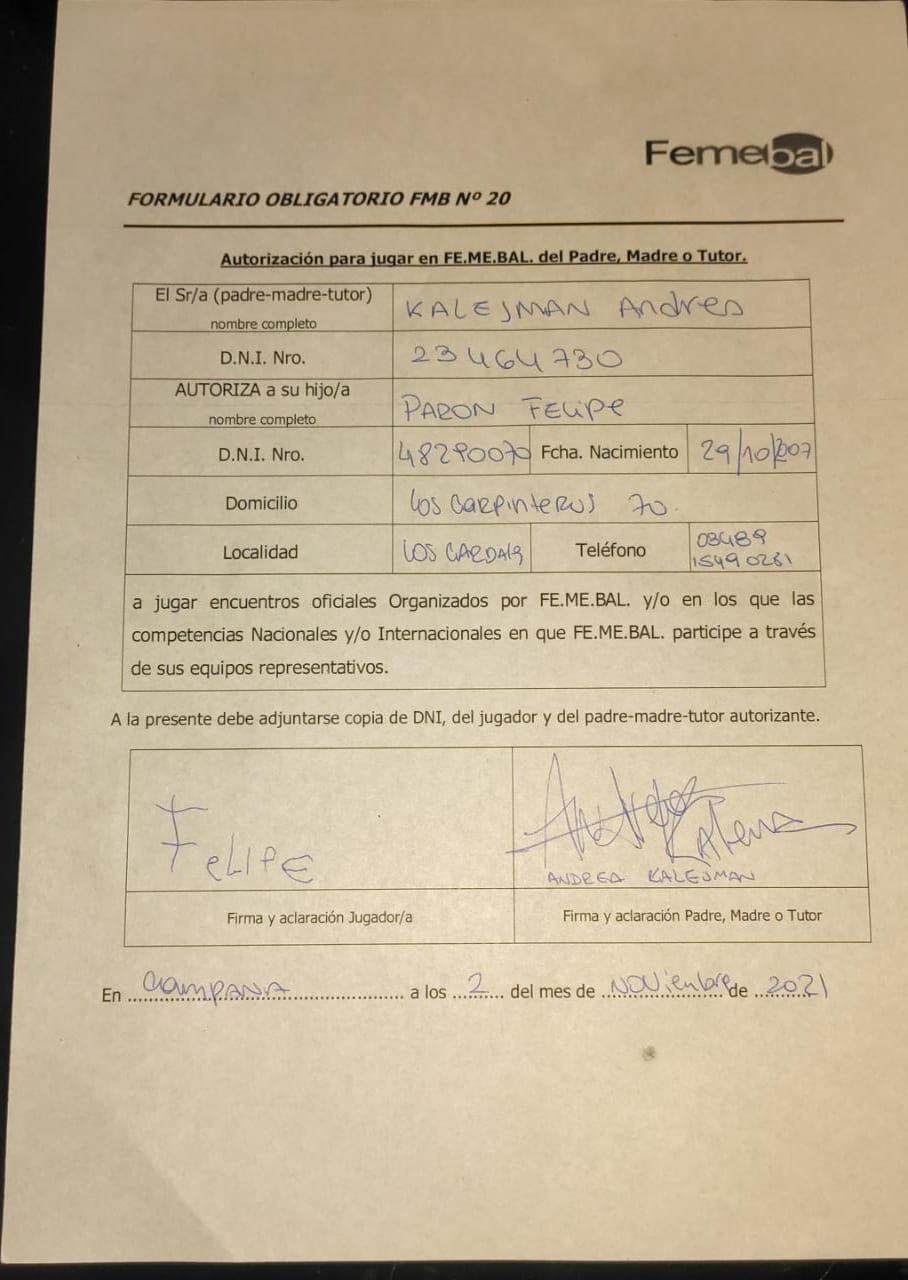 Femebal
FORMULARIO OBLIGATORIO FMB Nº 20
Autorización para jugar en FE.ME.BAL. del Padre, Madre o Tutor.
El Sr/a (padre-madre-tutor) nombre completo KALEJMAN Andrea
D.N.I. Nro. 23464730
AUTORIZA a su hijo/a nombre completo PARON FELIPE
D.N.I. Nro. 48290070 Fcha. Nacimiento 29/10/2007
Domicilio LOS CARPINTEROS 70.
Localidad LOS CARDALES Teléfono 03489
15490261
a jugar encuentros oficiales Organizados por FE.ME.BAL. y/o en los que las
competencias Nacionales y/o Internacionales en que FE.ME.BAL. participe a través
de sus equipos representativos.
A la presente debe adjuntarse copia de DNI, del jugador y del padre-madre-tutor autorizante.
FELIPE
ANDREA KALEJMAN
Firma y aclaración Jugador/a Firma y aclaración Padre, Madre o Tutor
En CAMPANA a los 2 del mes de NOViembre de 2021